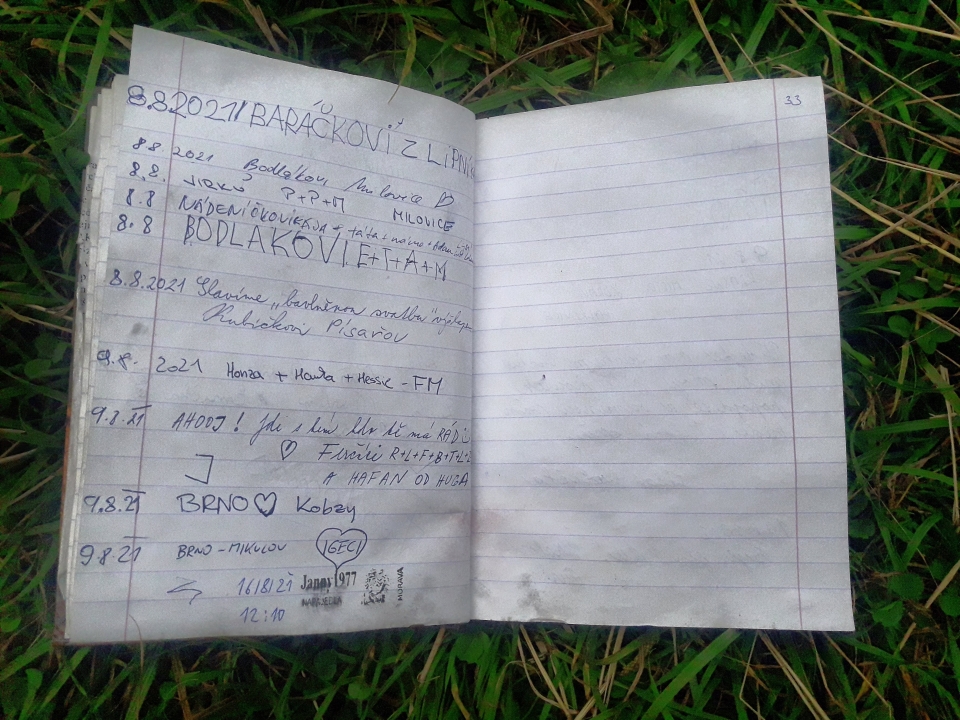 33
8.8.2021 BARÁČKOVI Z LIPNÍ
8.8.2021 Bodlákovi, Milovice
8.8. JIRKŮ P+P+M MILOVICE
8.8 NÁDENÍČKOVI KÁJA + táta + máma + Adam
8.8 BODLÁKOVI E+T+A+M
8.8.2021 Slavíme „bavlněnou svatbu"
Kubíčkovi Písařov
9.8. 2021 Honza + Hanka + Hessie - FM
9.8.21 AHOOJ! Jdi s tím kdo tě má RÁD
R+L+F+B+T+L+L
A HAFAN OD HUGA
9.8.21 BRNO Kobzy
9.8.21 BRNO - MIKULOV IGECI
16/8/21 Janny1977
NAPAJEDLA MORAVA
12:10